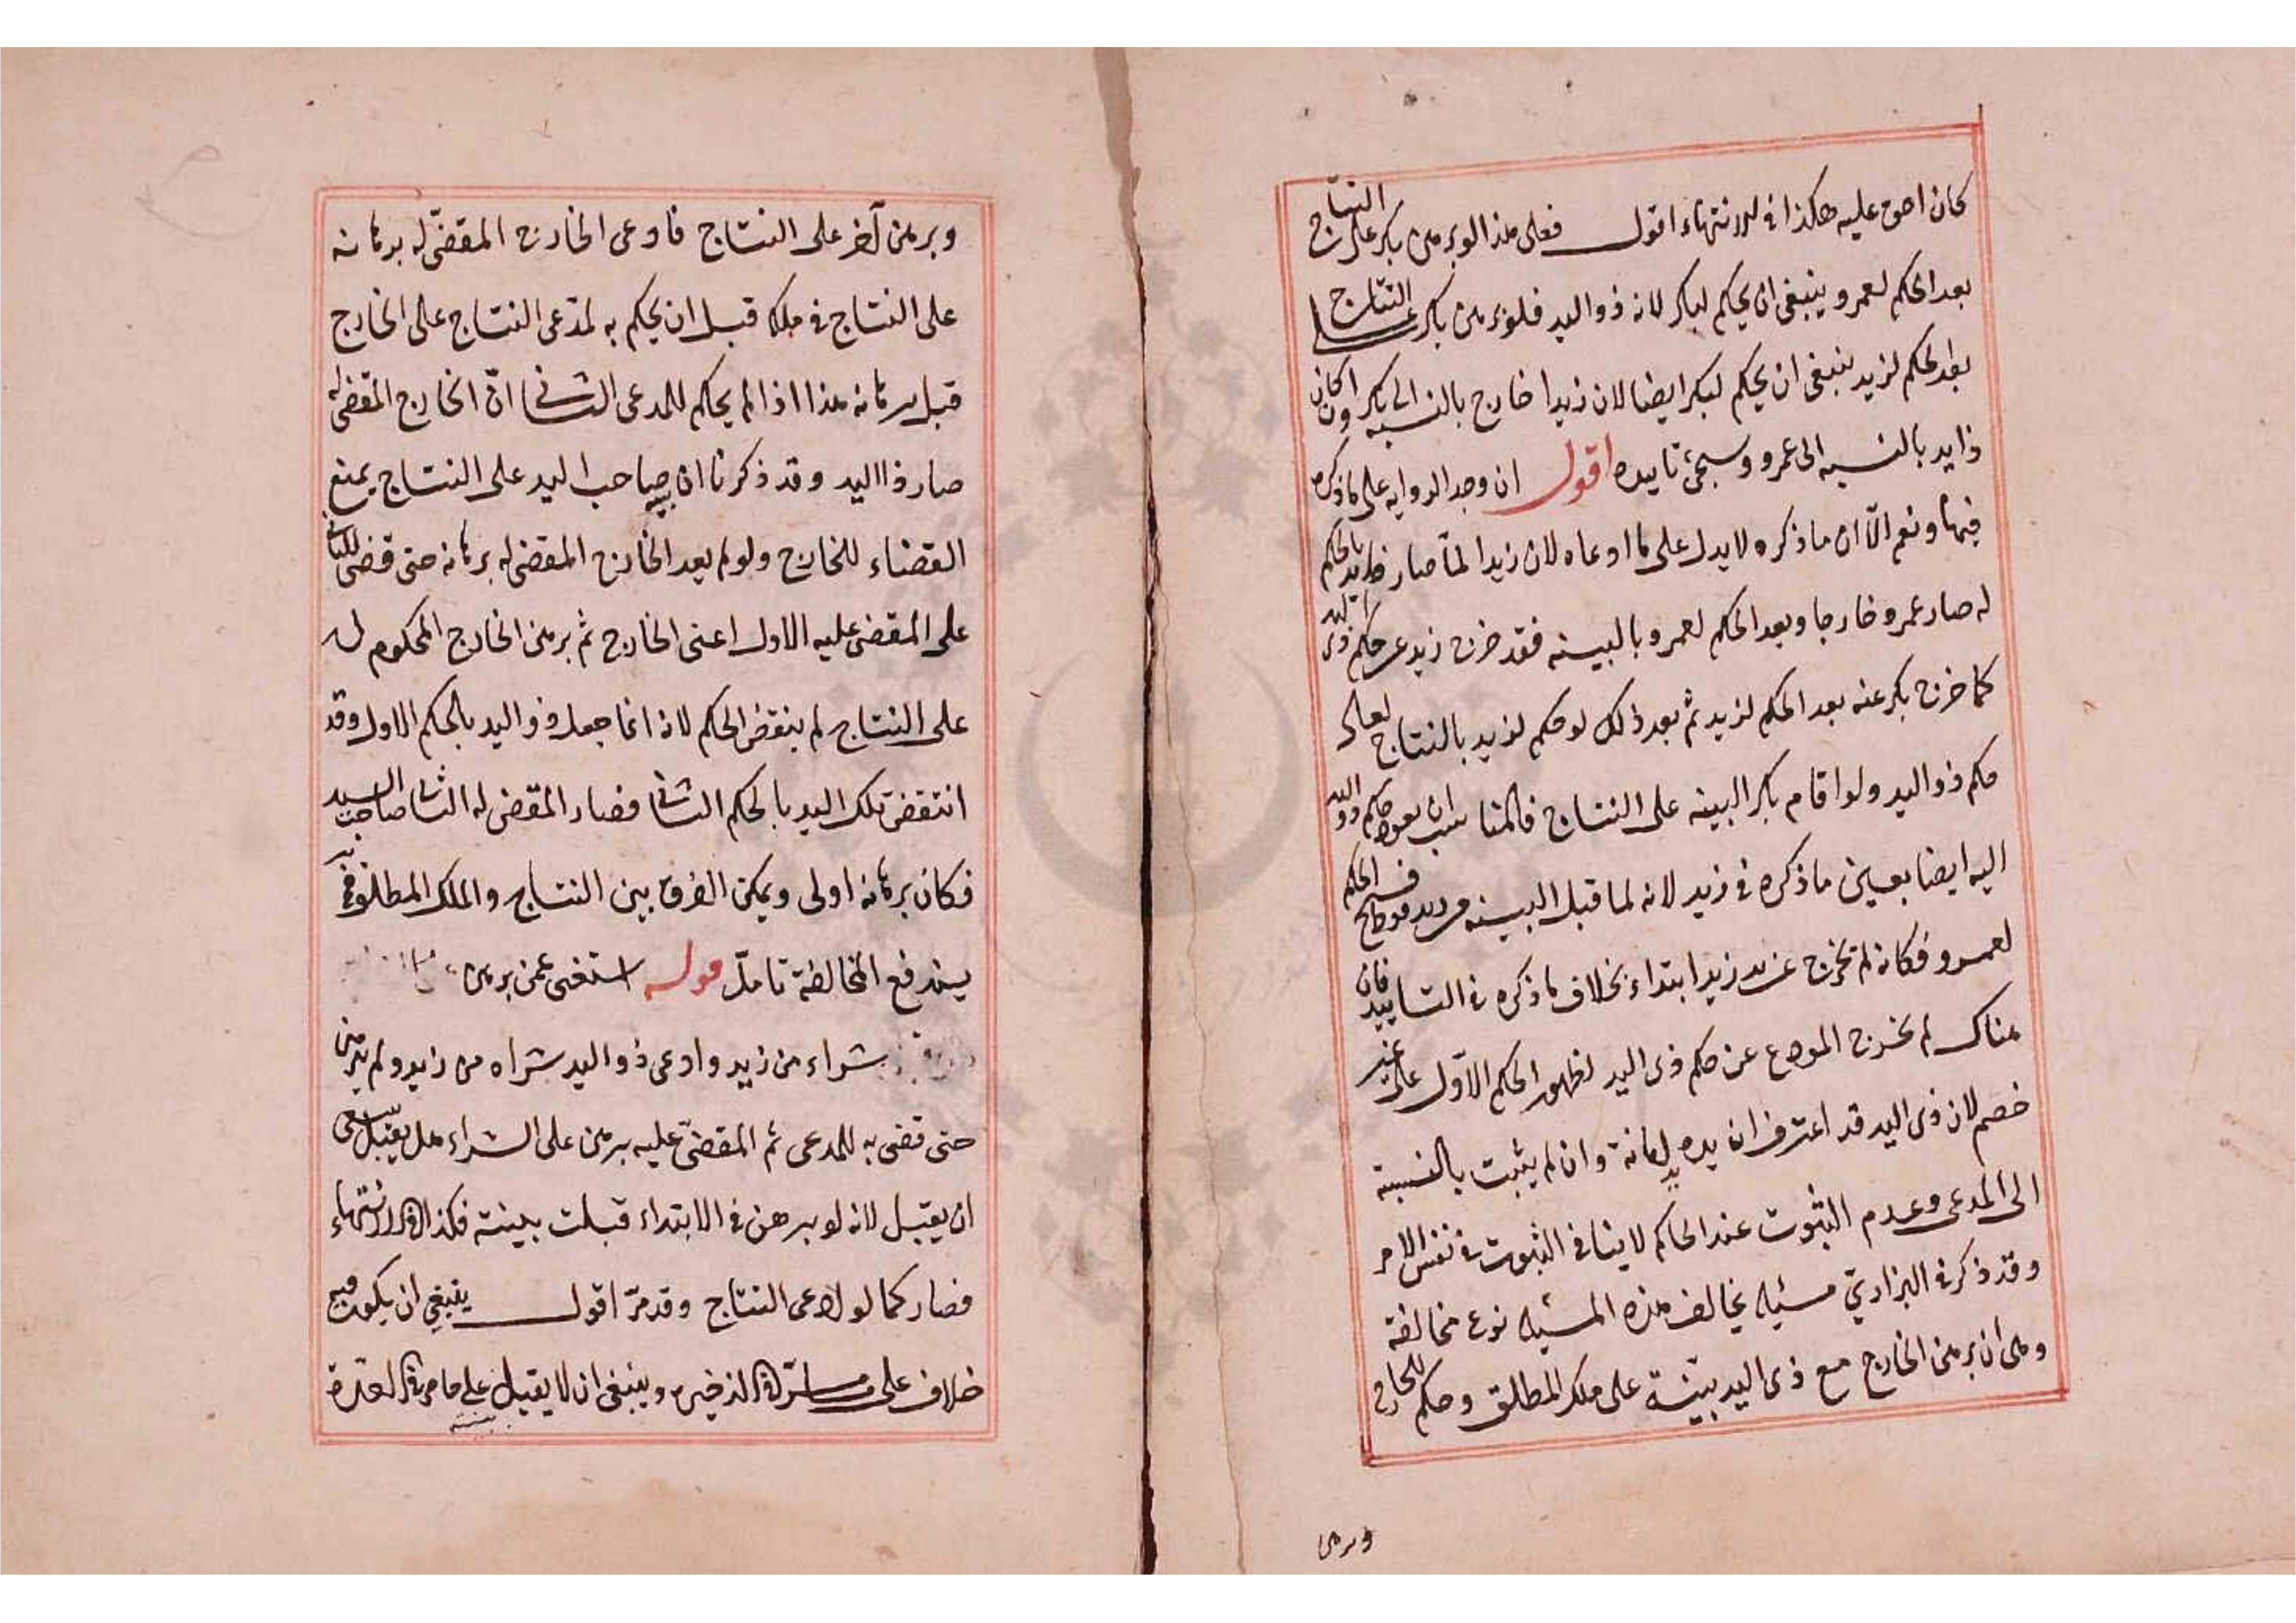 كان اصوح عليه هكذا فى الانتهاء اقول فعلى هذا لو برهن بكر على النتاج
بعد الحكم لعمرو ينبغى ان يحكم لبكر لانه ذو اليد فلو برهن بكر على النتاج
بعد الحكم لزيد ينبغى ان يحكم لبكر ايضا لان زيدا خارج بالنسبه الى بكر وان كان
ذا يد بالنسبه الى عمرو وسيجئ تاييده اقول ان وجد الروايه على ما ذكره
فبها ونعم الّا ان ما ذكره لا يدل على ما ادعاه لان زيدا لمّا صار ذا يد بالحكم
له صار عمرو خارجا وبعد الحكم لعمرو بالبينه فقد خرج زيد عن حكم ذى اليد
كما خرج بكر عنه بعد الحكم لزيد ثم بعد ذلك لو حكم لزيد بالنتاج لعاد
حكم ذو اليد ولو اقام بكر البينه على النتاج فالمناسب ان يعود حكم ذو اليد
اليه ايضا بعين ما ذكره فى زيد لانه لما قبل البينه من فسخ الحكم
لعمرو فكانه لم تخرج عن يد زيد ابتداء بخلاف ما ذكره فى التاييد فان
هناك لم يخرج المودع عن حكم ذى اليد لظهور الحكم الاوّل على غير
خصم لان ذى اليد قد اعترف ان يده يد امانة وان لم يثبت بالنسبة
الى المدعى وعدم الثبوت عند الحاكم لا ينافى الثبوت فى نفس الامر
وقد ذكر فى البزازيّ مسئله يخالف هذه المسئله نوع مخالفة
وهى ان برهن الخارج مع ذى اليد بيّنة على ملك المطلق وحكم للخارج
وبرهن
وبرهن آخر على النتاج فادعى الخارج المقضىّ له برهانه
على النتاج فى ملكه قبل ان يحكم به لمدّعى النتاج على الخارج
قبل برهانه هذا اذا لم يحكم للمدعى الثانى امّا انّ الخارج المقضى له
صار ذا اليد وقد ذكرنا ان بينة صاحب اليد على النتاج يمنع
القضاء للخارج ولو لم يعد الخارج المقضى له برهانه حتى قضى للثانى
على المقضى عليه الاول اعنى الخارج ثم برهن الخارج المحكوم له
على النتاج لم ينتقض الحكم لانه انما جعل ذو اليد بالحكم الاول وقد
انتقضت تلك اليد بالحكم الثانى فصار المقضى له الثانى صاحب اليد
فكان برهانه اولى ويمكن الفرق بين النتاج والملك المطلق فى
يندفع المخالفة تامّل قوله استغنى عمن برهن
شراء من زيد وادعى ذو اليد شراه من زيد ولم يبرهن
حتى قضى به للمدعى ثم المقضىّ عليه برهن على الشراء هل يقبل ينبغى
ان يقبل لانه لو برهن فى الابتداء قبلت بينته فكذا فى الانتهاء
فصار كما لو ادعى النتاج وقد مرّ اقول ينبغى ان يكون فيه
خلاف على ما مرّ فى الذخيره وينبغى ان لا يقبل بينته على ما مر فى العدة